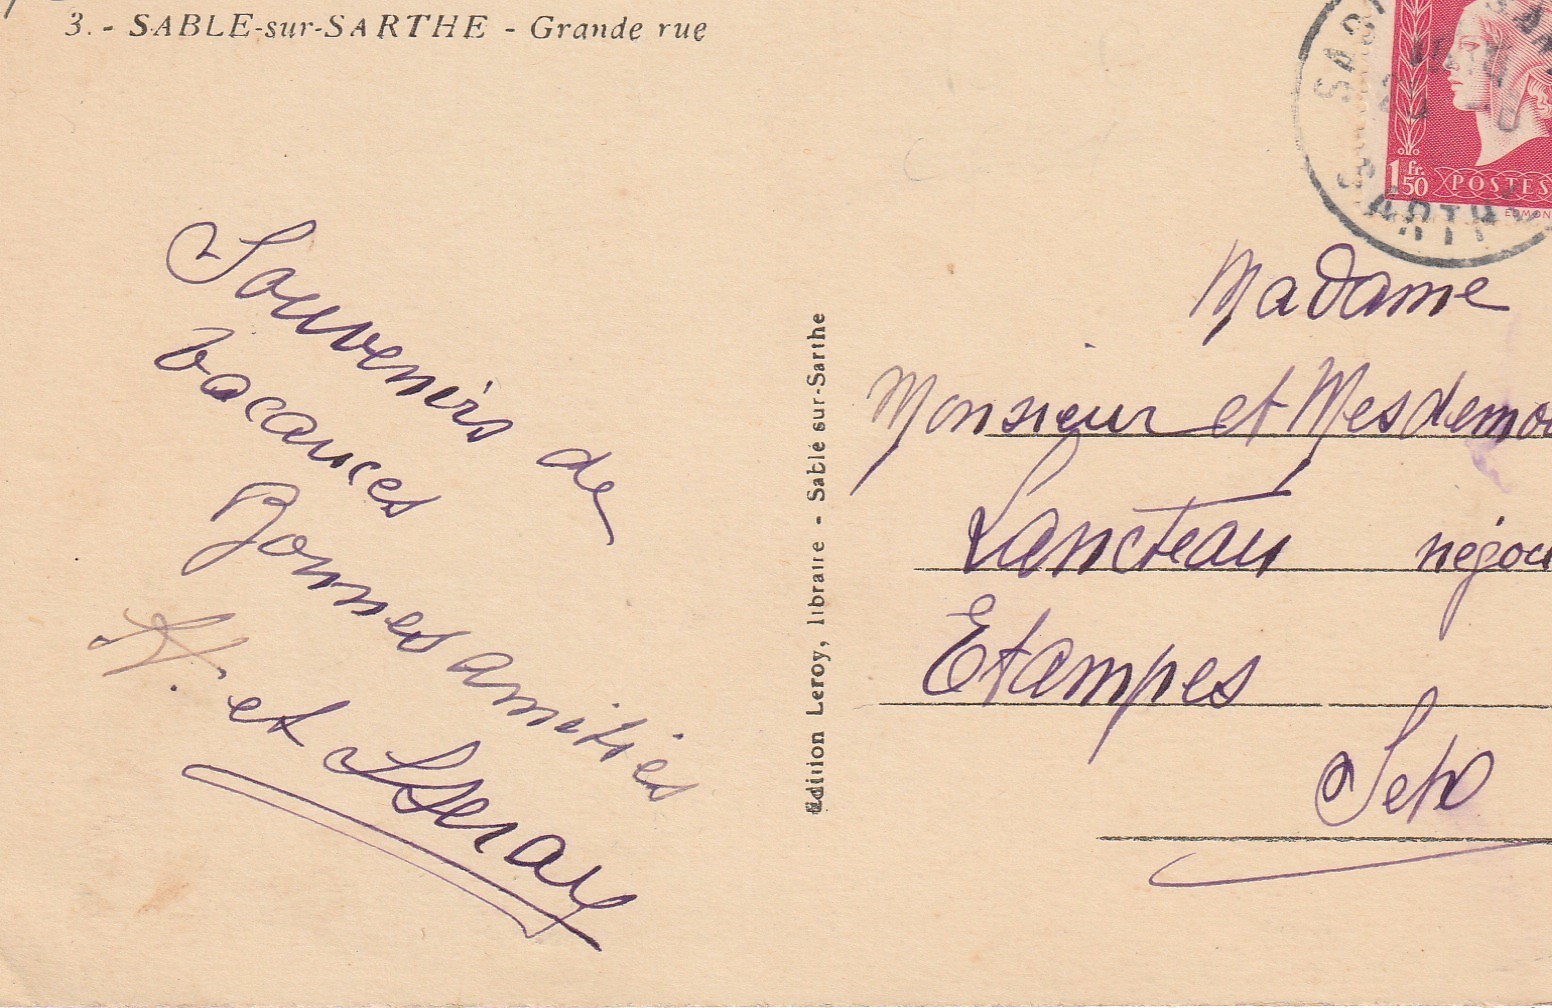 3. - SABLE-sur-SARTHE - Grande rue
Souvenirs de
vacances
Bonnes amitiés
et
Edition Leroy, libraire - Sablé sur-Sarthe
SARTHE
1 fr. 50 POSTES
EDMON
Madame
Monsieur et Mesdemoi
Lancteau négoci
Etampes
S et O